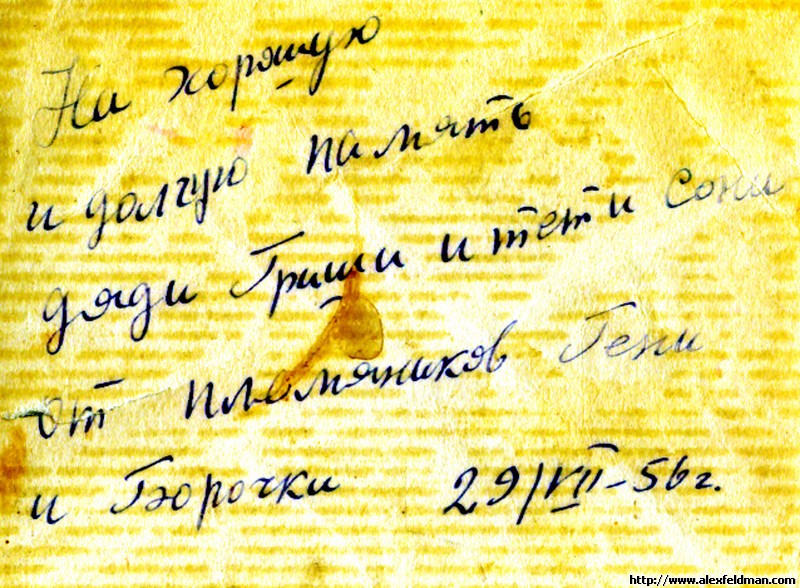 На хорошую
и долгую память
дяди Гриши и тети Сони
от племяников Гени
и Борочки 29/VII-56г.
http://www.alexfeldman.com